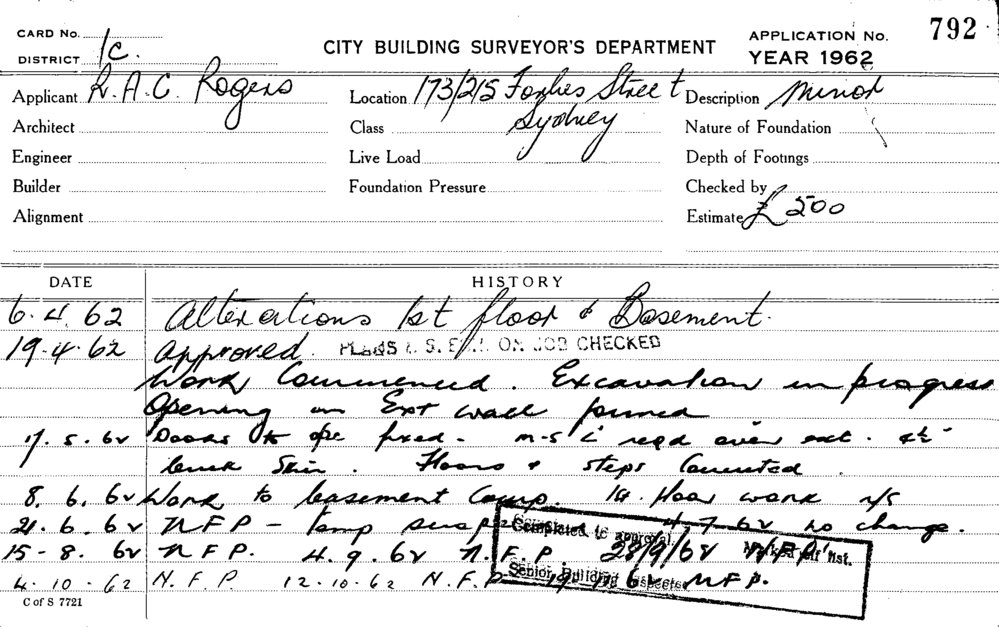 CARD No.
DISTRICT 1c.
CITY BUILDING SURVEYOR'S DEPARTMENT
APPLICATION No. 792
YEAR 1962
Applicant R. A. C. Rogers Location 173/215 Forbes Street Description Minor
Architect Class Sydney Nature of Foundation
Engineer Live Load Depth of Footings
Builder Foundation Pressure Checked by
Alignment Estimate £ 500
DATE HISTORY
6. 4. 62 Alterations 1st floor & Basement.
19. 4. 62 Approved. PLANS ON JOB CHECKED
Work Commenced. Excavation in progress
Opening in Ext wall formed
17. 5. 62 Doors to fixed - m-s reqd over ext. 4½"
brick skin. Floors & steps Concreted.
8. 6. 62 Work to basement Comp. 1st floor work n/s
21. 6. 62 N F P - temp 4. 7. 62 no change.
15 - 8. 62 N F P. 4. 9. 62 N. F. P 28/9/62 N/F/P
Completed to approval. Marked off list.
4. 10 - 62 N. F. P. 12. 10. 62 N. F. P 62 N F P.
Senior Building Inspector
C of S 7721